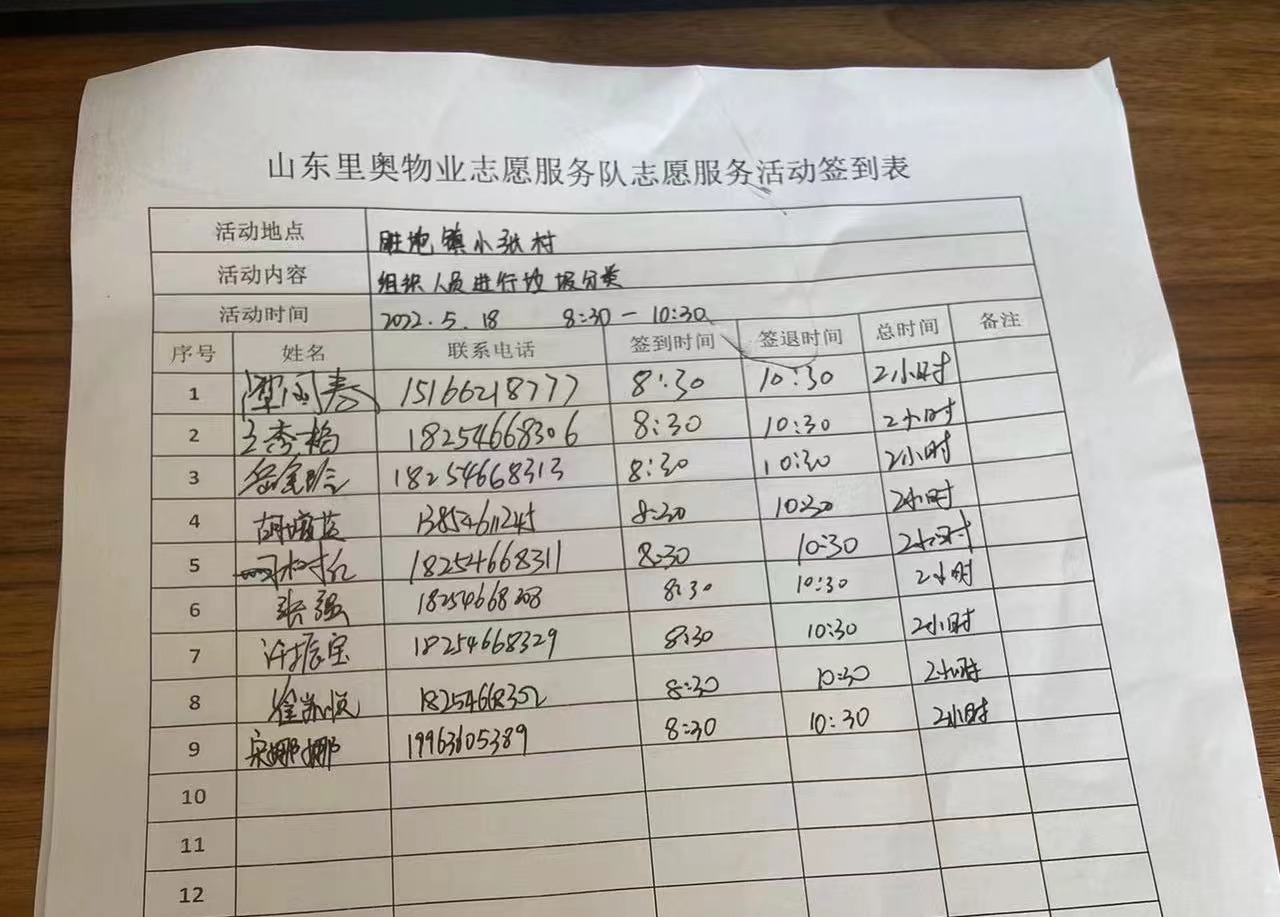 山东里奥物业志愿服务队志愿服务活动签到表
活动地点 胜坨镇小张村
活动内容 组织人员进行垃圾分类
活动时间 2022.5.18 8:30-10:30
序号 姓名 联系电话 签到时间 签退时间 总时间 备注
1 15166218777 8:30 10:30 2小时
2 王秀梅 18254668306 8:30 10:30 2小时
3 18254668313 8:30 10:30 2小时
4 13854611245 8:30 10:30 2小时
5 18254668311 8:30 10:30 2小时
6 张强 8:30 10:30 2小时
7 许振宝 18254668329 8:30 10:30 2小时
8 18254668352 8:30 10:30 2小时
9 宋娜娜 19963605389 8:30 10:30 2小时
10
11
12